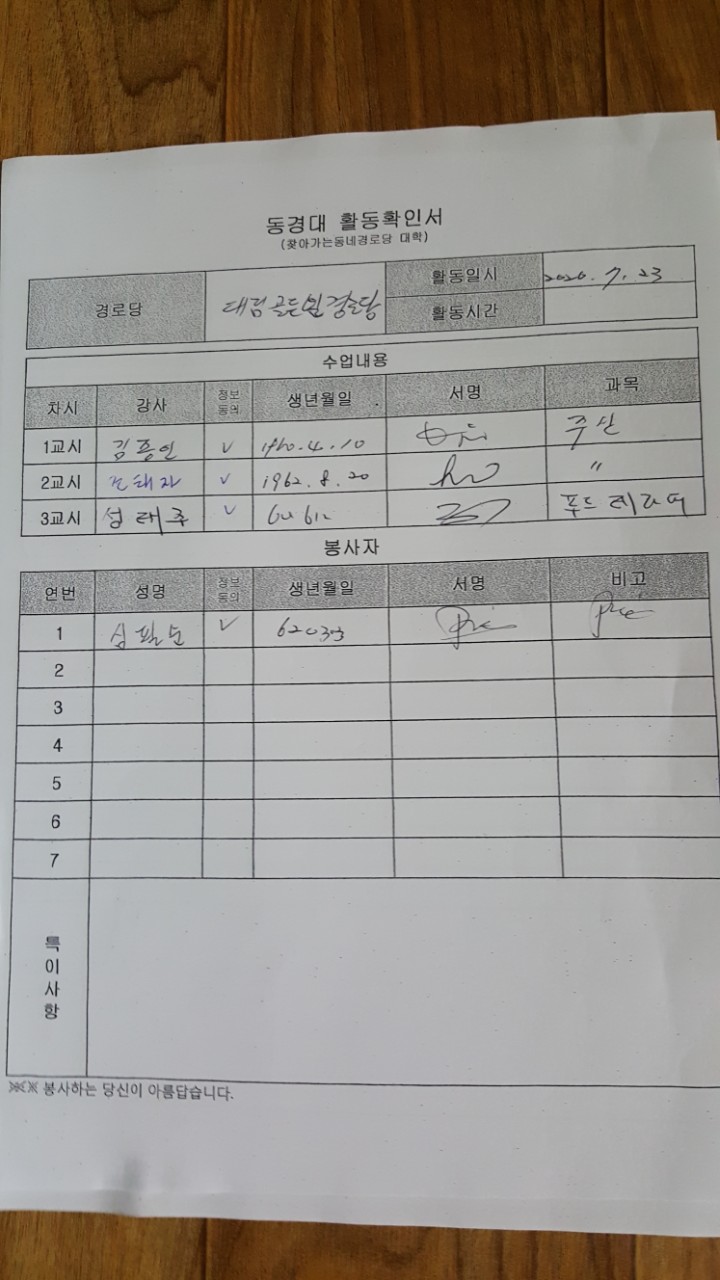 동경대 활동확인서
(찾아가는동네경로당 대학)
경로당 대림골든빌경로당 활동일시 2020. 7. 23
활동시간
수업내용
차시 강사 정보동의 생년월일 서명 과목
1교시 김흥인 V 1960. 4. 10 주산
2교시 조태자 V 1962. 8. 20 〃
3교시 성태주 V 푸드테라피
봉사자
연번 성명 정보동의 생년월일 서명 비고
1 심필순 V
2
3
4
5
6
7
특이사항
※※ 봉사하는 당신이 아름답습니다.